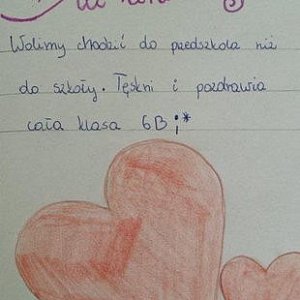 Wolimy chodzić do przedszkola niż
do szkoły. Tęskni i pozdrawia
cała klasa 6B ;*